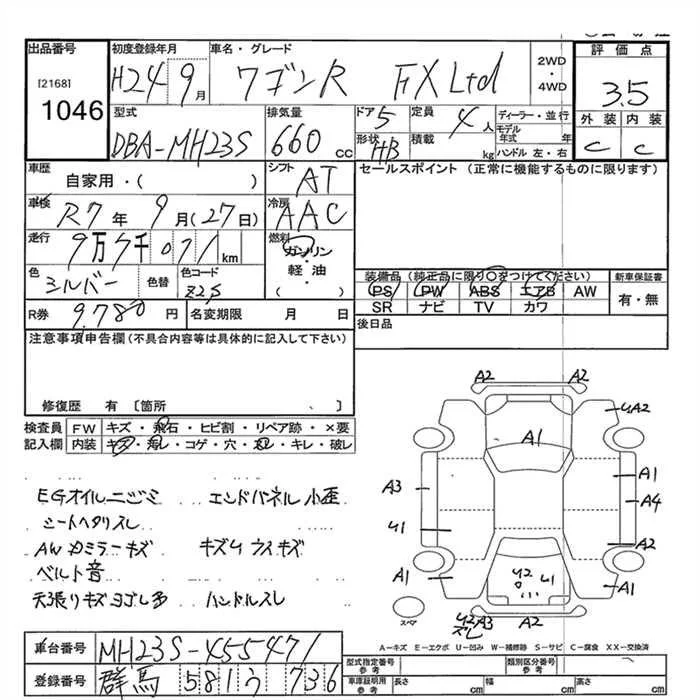 出品番号 初度登録年月 車名・グレード 2WD・4WD 評価点
[2168] H24 9月 ワゴンR FX Ltd 3.5
1046
型式 排気量 ドア 定員 ディーラー・並行 外装 内装
DBA-MH23S 660cc 5 4人 モデル年式 年 C C
形状 HB 積載 kg ハンドル 左・右
車歴 自家用・( ) シフト AT セールスポイント (正常に機能するものに限ります)
車検 R7年9月(27日) 冷房 AAC
走行 9万7千071km 燃料 ガソリン
軽油
( )
色 シルバー 色替 色コード Z2S
装備品 (純正品に限り○をつけてください) 新車保証書
PS PW ABS エアB AW 有・無
SR ナビ TV カワ
R券 9,780円 名変期限 月 日 後日品
注意事項申告欄(不具合内容等は具体的に記入して下さい)
修復歴 有 〔箇所 、 〕
検査員 FW キズ・飛石・ヒビ割・リペア跡・×要
記入欄 内装 キズ・汚レ・コゲ・穴・スレ・キレ・破レ
EGオイルニジミ エンドパネル小歪
シートヘタリスレ
AWカミラーキズ キズウスキズ
ベルト音
天張りキズヨゴレ多 ハンドルスレ
A2 A2
U A2
A1
A3 A1
A4
U1
A2
A1 U2 U1 A1
スペア U2 A3 A2
スレ
A-キズ E-エクボ U-凹み W-補修跡 S-サビ C-腐食 XX-交換済
車台番号 MH23S-455471
登録番号 群馬 581 う 736
型式指定番号 参考 類別区分番号 参考
車庫証明用 参考 長さ cm 幅 cm 高さ cm